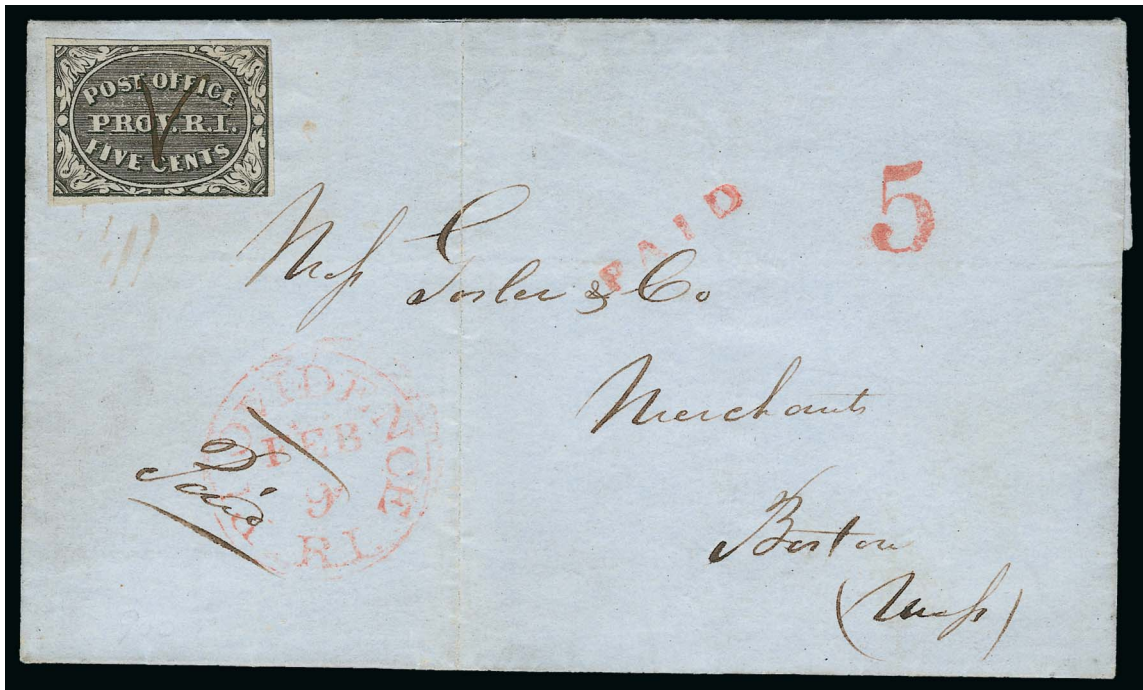 POST OFFICE
PROV. R.I.
FIVE CENTS
V
PAID
5
Mess
& Co
Merchants
Boston
(Mass)
PROVIDENCE
FEB
9
R.I.
Paid